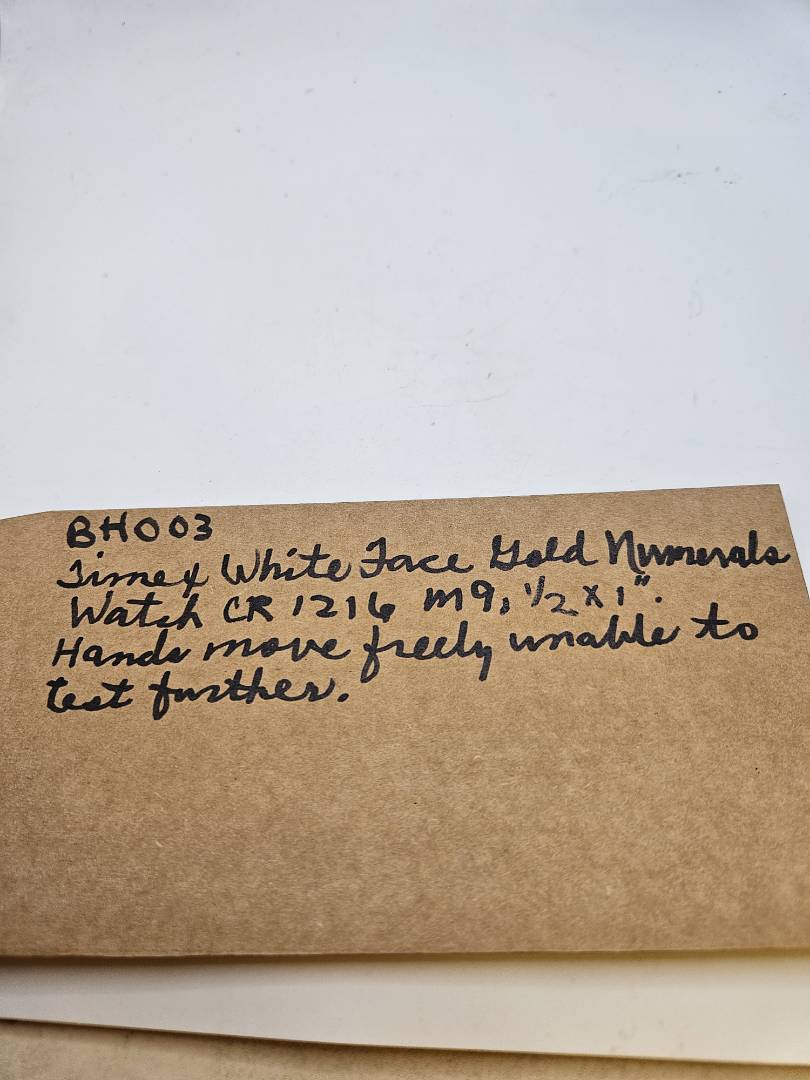 BH003
Timex White Face Gold Numerals
Watch CR 1216 M9, 1/2 x 1".
Hands move freely unable to
test further.